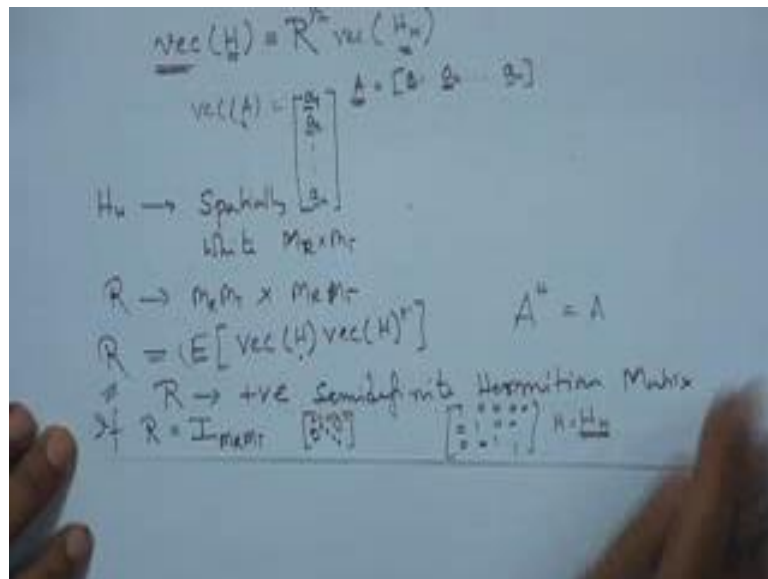 vec(H) = R^{1/2} vec(H_w)
vec(A) = [a_1 a_2 ⋮ a_n] A = [a_1 a_2 ... a_n]
H_w → Spatially
white M_R×M_T
R → M_RM_T × M_RM_T
R = E[vec(H) vec(H)^H] A^H = A
R → +ve Semidefinite Hermitian Matrix
If R = I_{M_RM_T} H = H_w